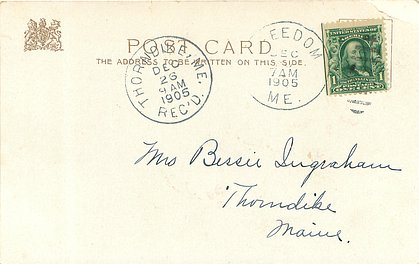 POST CARD.
THE ADDRESS TO BE WRITTEN ON THIS SIDE.
THORNDIKE, ME.
DEC
26
9 AM
1905
REC'D.
FREEDOM
DEC
7AM
1905
ME.
1
1
Mrs Bessie Ingraham
Thorndike
Maine.